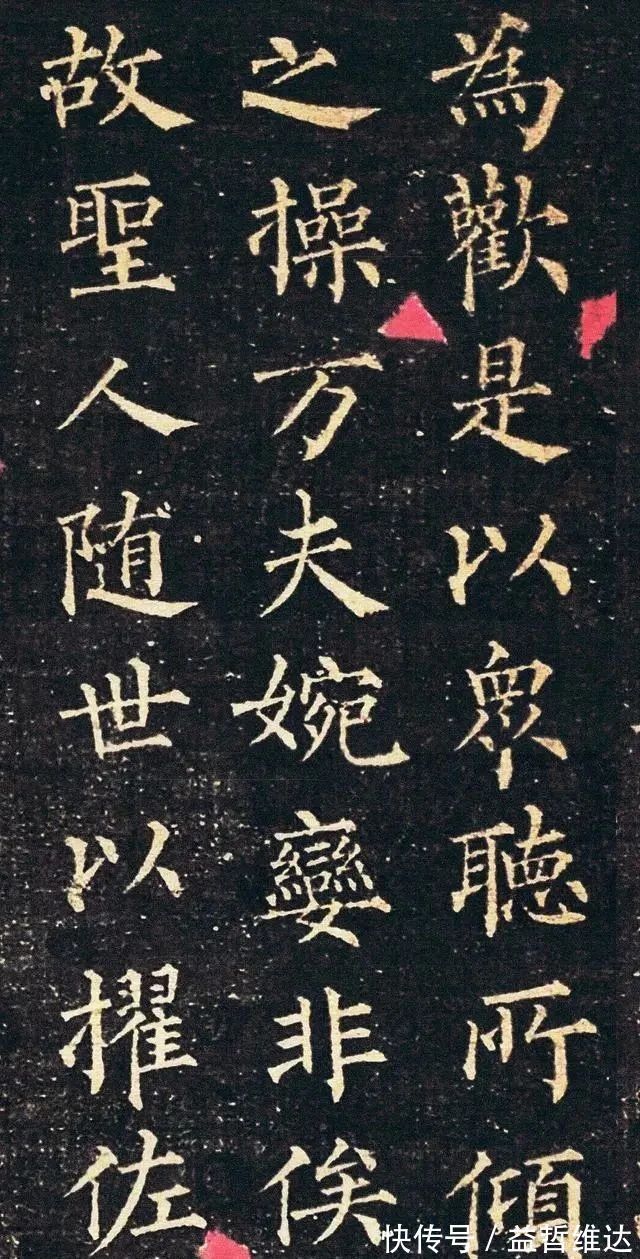 為歡是以衆聽所傾
之操万夫婉孌非俟
故聖人随世以擢佐
快传号／益哲维达